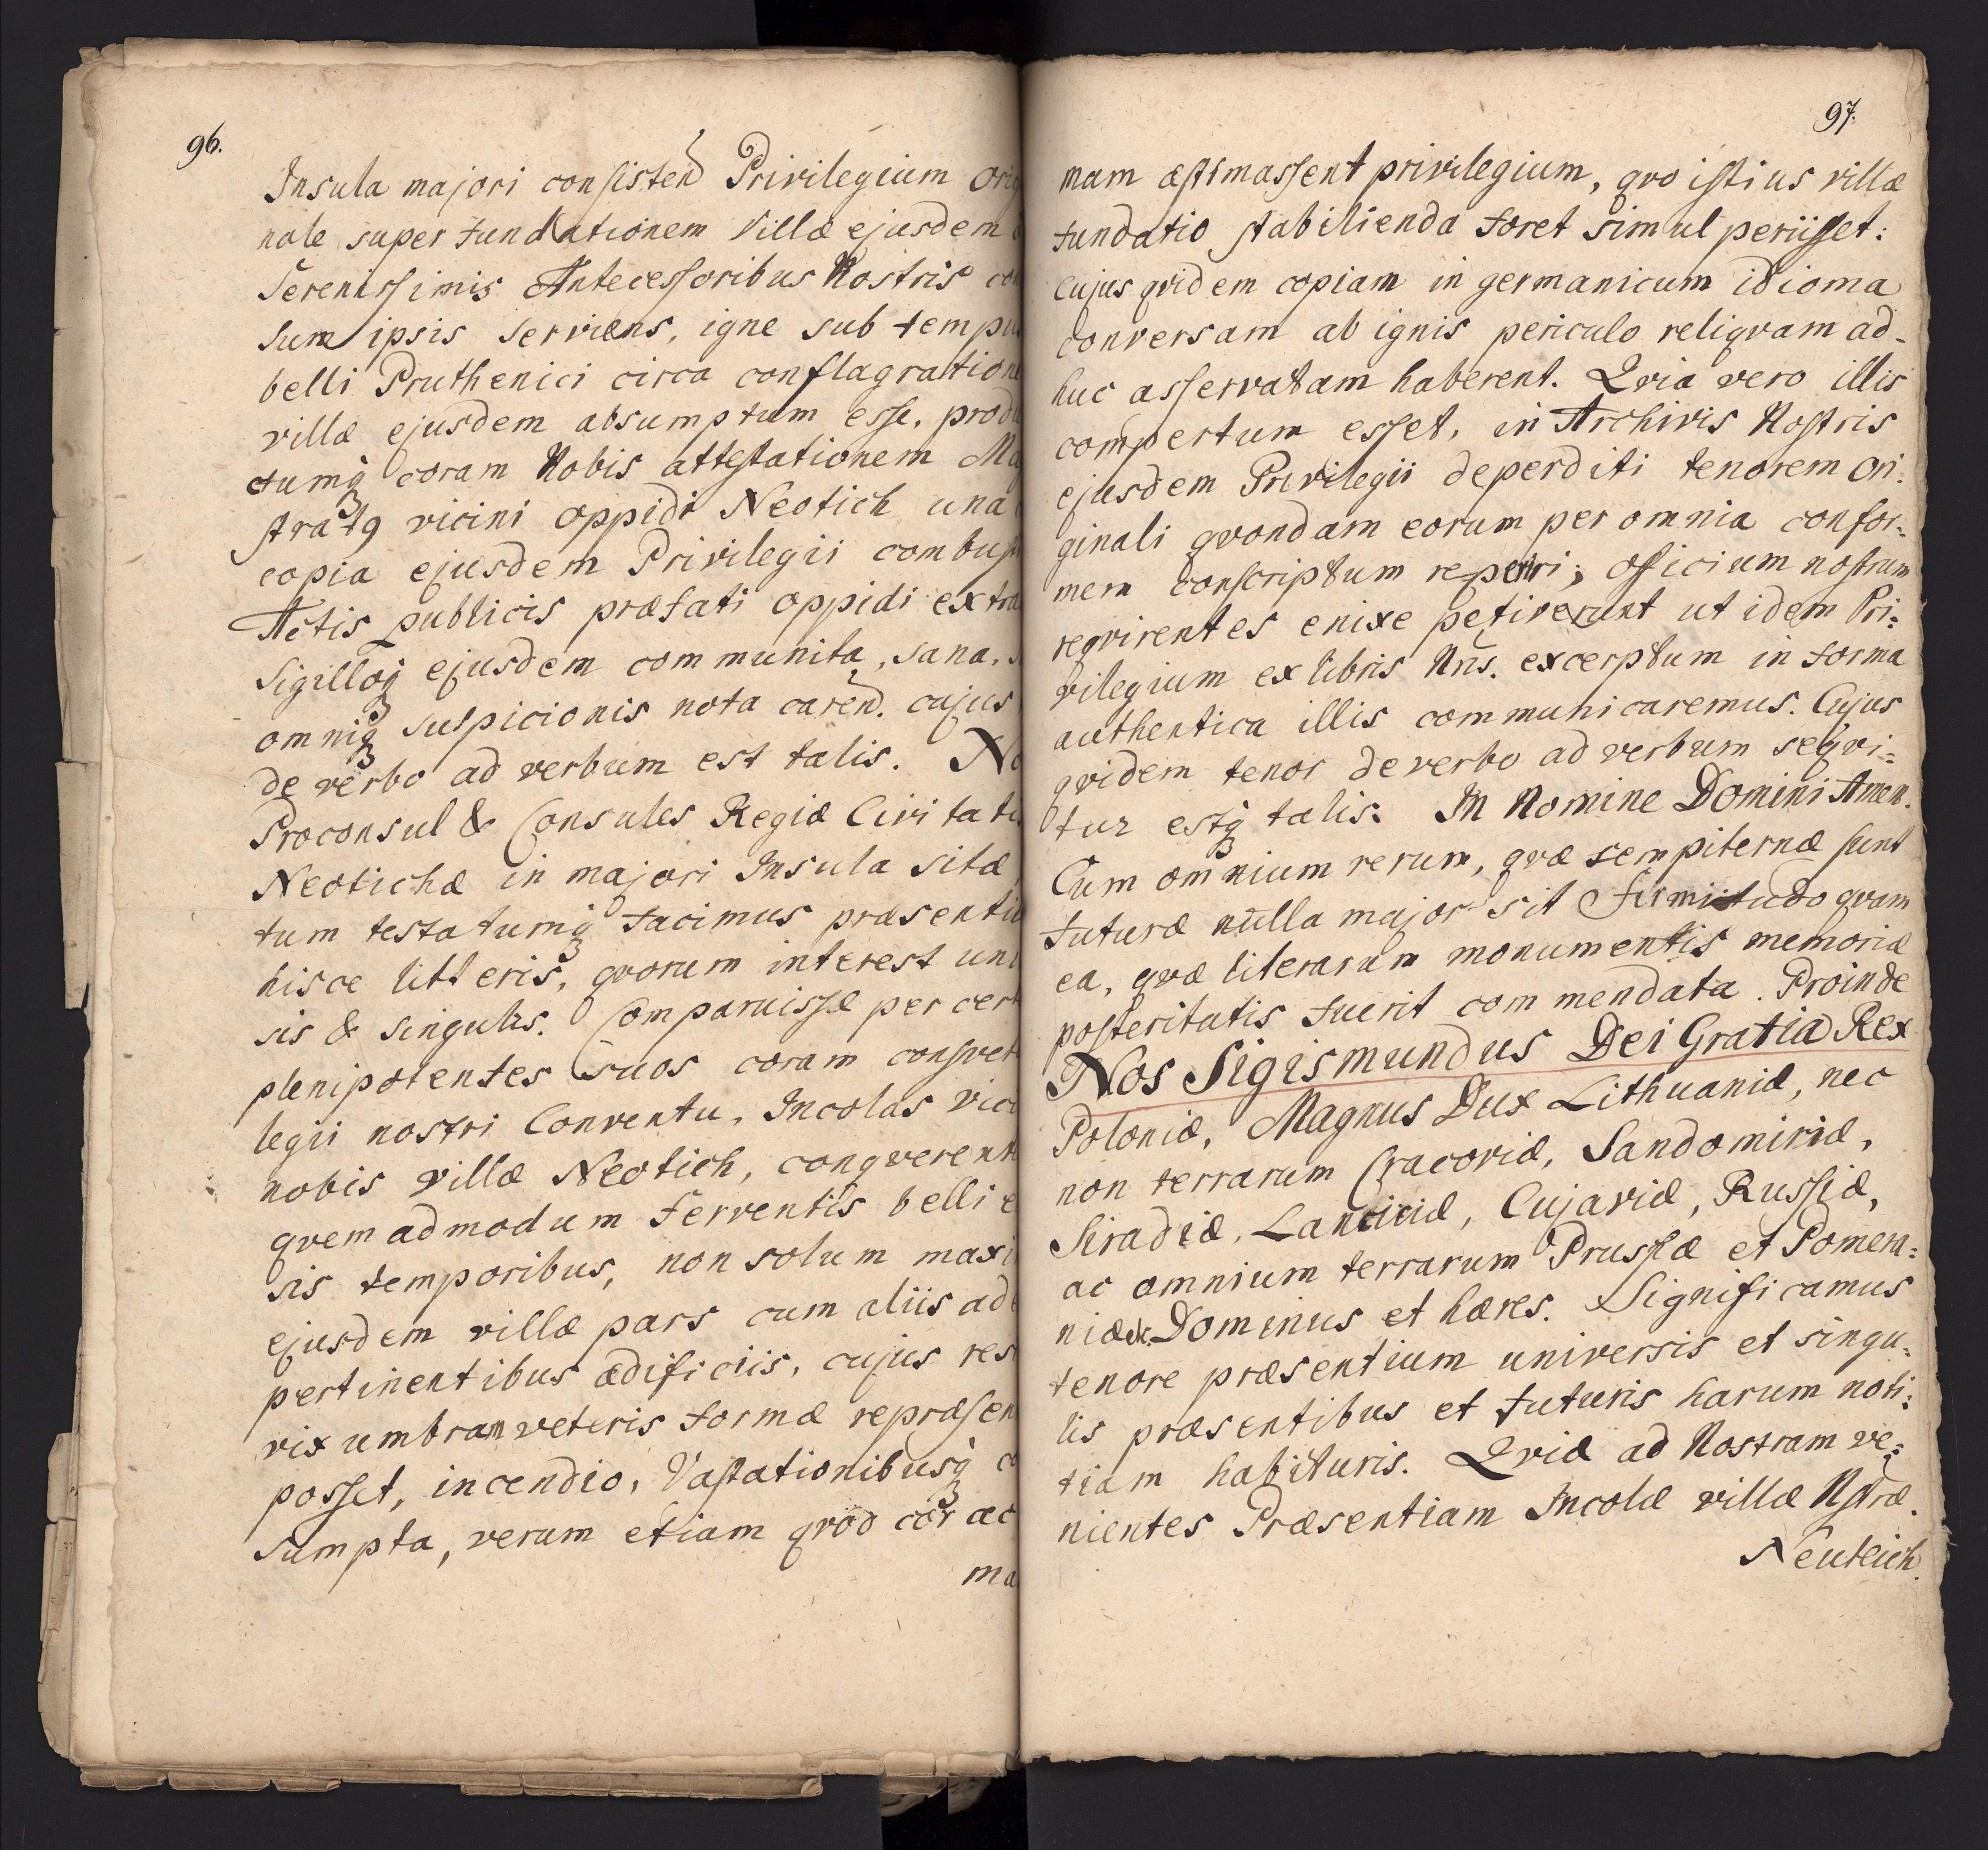 96.
Insula majori consistend Privilegium orig
nale super fundationem Villæ ejusdem
Serenissimis Antecessoribus Nostris con
sum ipsis serviens, igne sub tempus
belli Pruthenici circa conflagratione
villæ ejusdem absumptum esse, produ
ctumq coram Nobis attestationem Ma
stratg vicini oppidi Neotich una
copia ejusdem Privilegii combus
Actis publicis præfati oppidi extra
Sigilloq ejusdem communita, sana,
omniq suspicionis nota carend. cujus
de verbo ad verbum est talis. No
Proconsul & Consules Regiæ Civitatis
Neotichæ in majori Insula sitæ
tum testatumq facimus præsentib
hisce litteris, qvorum interest uni
sis & singulis. Comparuisse per cert
plenipotentes suos coram consvet
legii nostri Conventu, Incolas vici
nobis villæ Neotich, conqverent
qvemadmodum ferventis belli
sis temporibus, non solum maxi
ejusdem villæ pars cum aliis ad
pertinentibus ædificiis, cujus res
vix umbram veteris formæ repræsen
posset, incendio, Vastationibusq co
sumpta, verum etiam qvod cor ac
ma
97.
mam æstimassent privilegium, qvo istius villæ
fundatio stabilienda foret simul periisset:
Cujus qvidem copiam in germanicum idioma
conversam ab ignis periculo reliqvam ad-
huc asservatam haberent. Qvia vero illis
compertum esset, in Archivis Nostris
ejusdem Privilegii deperditi tenorem ori:
ginali qvondam eorum per omnia confor:
mem conscriptum reperiri; officium nostrum
reqvirentes enixe petiverunt ut idem Pri:
vilegium ex libris Nris. excerptum in forma
authentica illis communicaremus. Cujus
qvidem tenor de verbo ad verbum seqvi=
tur estq talis: In Nomine Domini Amen.
Cum omnium rerum, qvæ sempiternæ sunt
futuræ nulla major sit firmitudo qvam
ea, qvæ literarum monumentis memoriæ
posteritatis fuerit commendata. Proinde
Nos Sigismundus Dei Gratia Rex
Poloniæ, Magnus Dux Lithuaniæ, nec
non terrarum Cracoviæ, Sandomiriæ,
Siradiæ, Lanciciæ, Cujaviæ, Russiæ,
ac omnium terrarum Prussiæ et Pomera:
niæ &c. Dominus et hæres. Significamus
tenore præsentium universis et singu:
lis præsentibus et futuris harum noti:
tiam habituris. Qviâ ad Nostram ve:
nientes Præsentiam Incolæ villæ Nstræ
Neuteich.